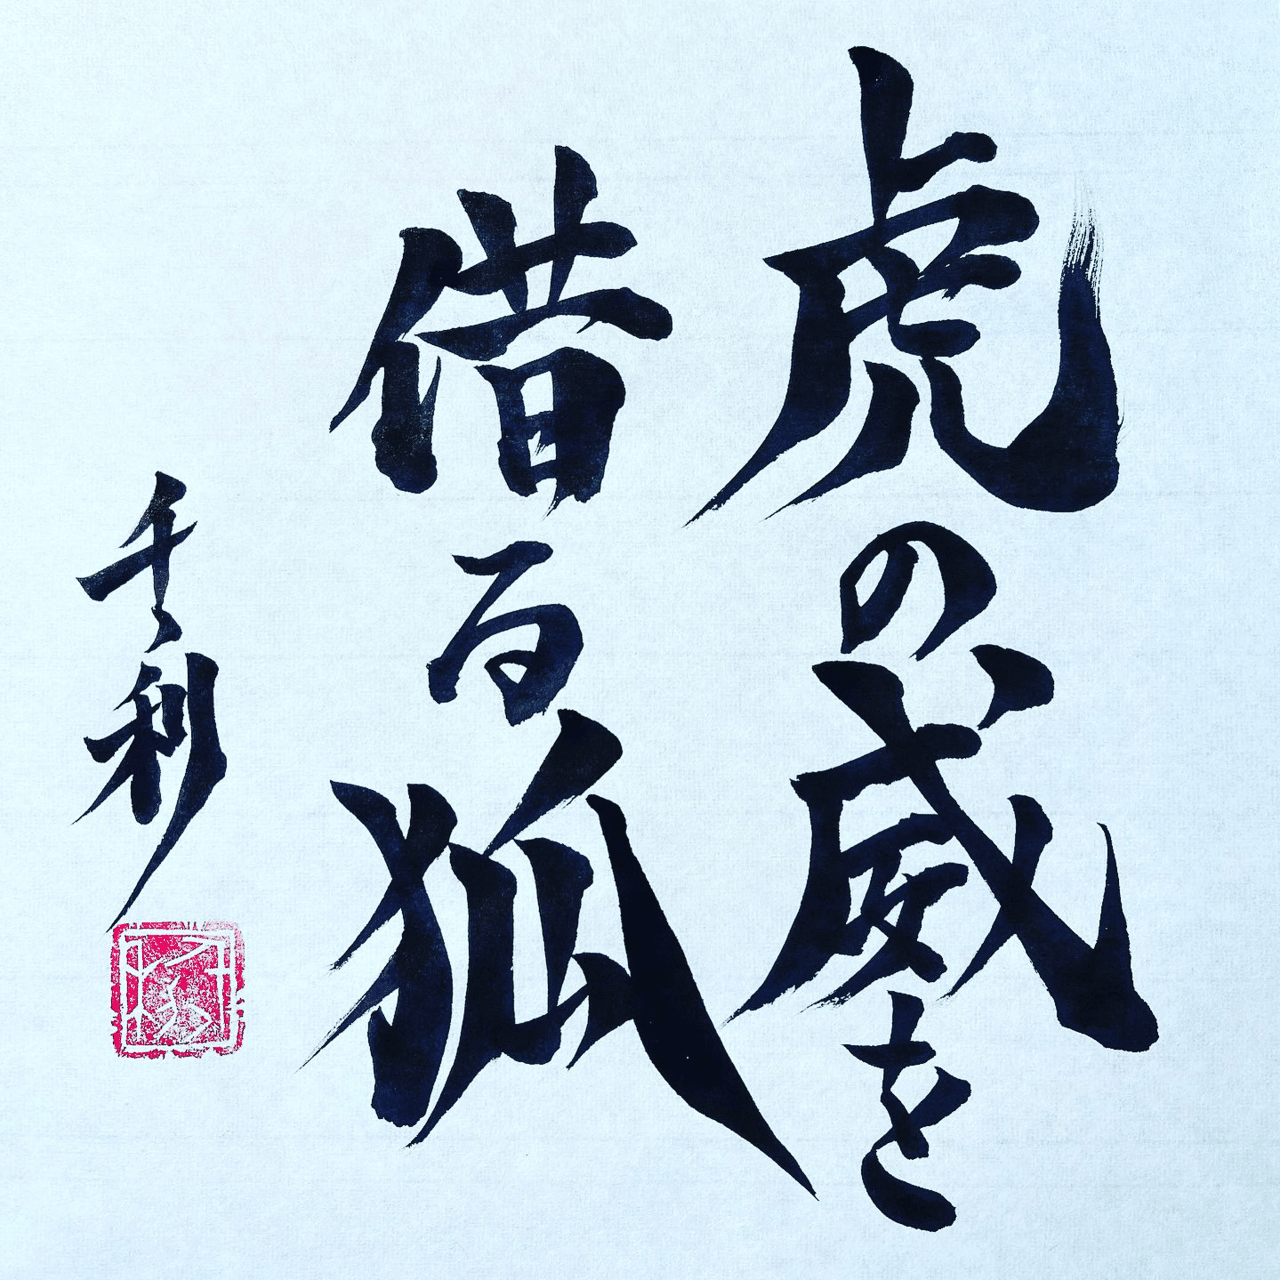 虎の威を
借る狐
千利